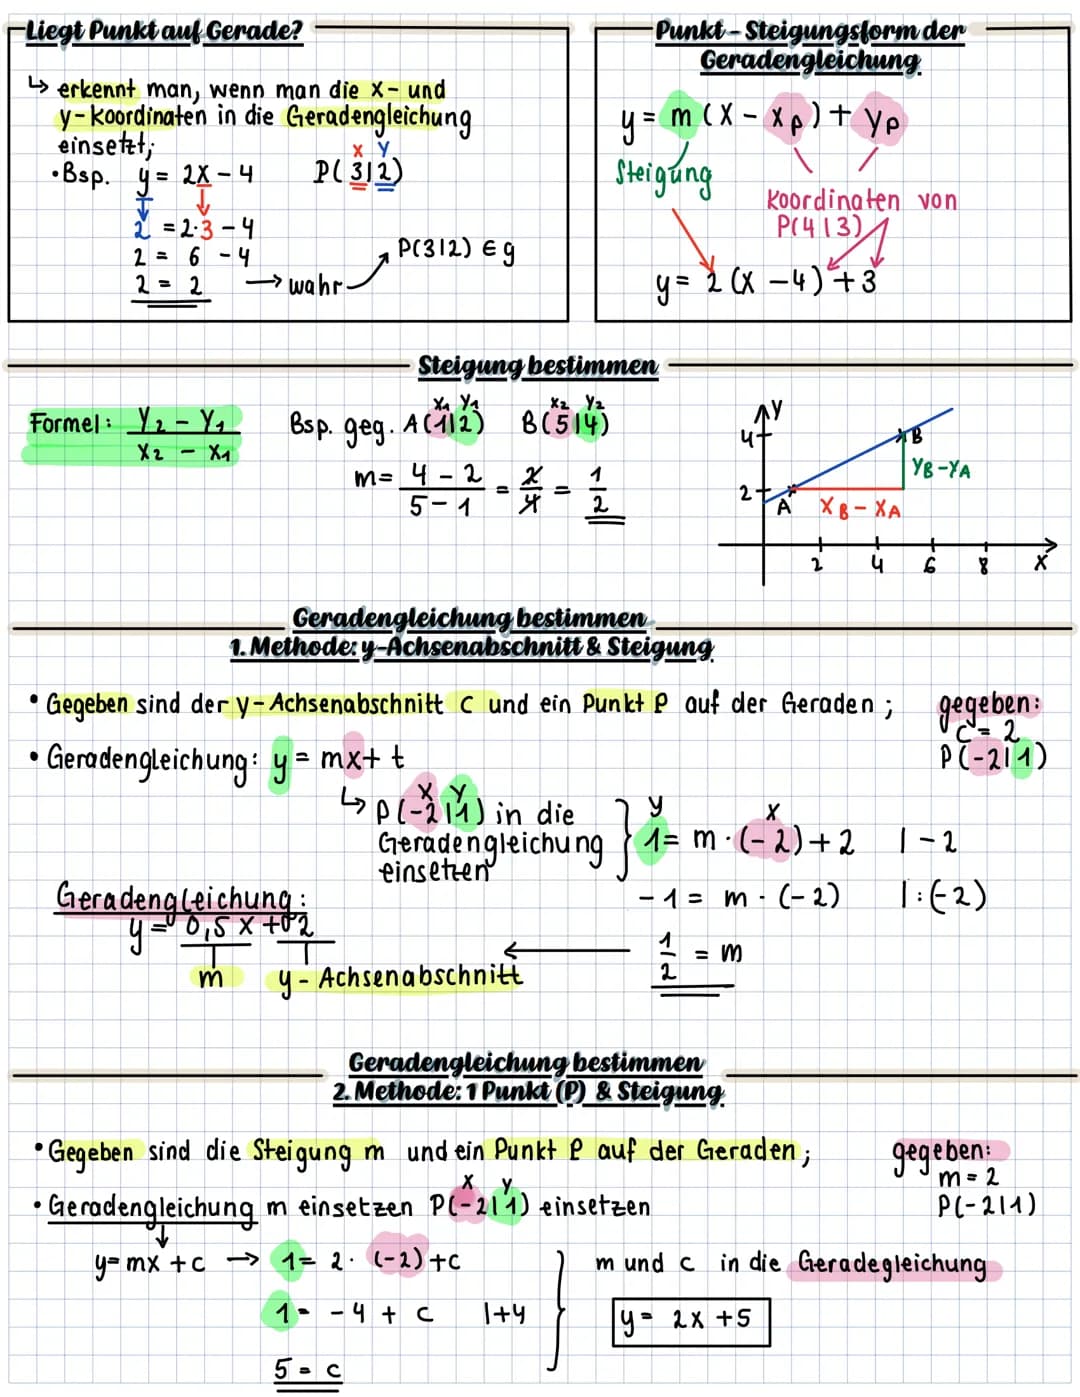 Liegt Punkt auf Gerade?
↳ erkennt man, wenn man die x- und
y-koordinaten in die Geradengleichung
einsetzt;
•Bsp. y = 2x - 4
x y
P(3|2)
2 = 2·3 - 4
2 = 6 - 4
2 = 2 → wahr
P(3|2) ∈ g
Punkt - Steigungsform der
Geradengleichung
y = m (x - xp) + yp
Steigung
Koordinaten von
P(4|3)
y = 2 (x - 4) + 3
Steigung bestimmen
Formel: Y2 - Y1
X2 - X1
X1 Y1 X2 Y2
Bsp. geg. A(1|2) B(5|4)
m = 4 - 2 = 2 = 1
5 - 1 4 2
y
4
B
YB - YA
2
A XB - XA
2 4 6 8 x
Geradengleichung bestimmen
1. Methode: y-Achsenabschnitt & Steigung
• Gegeben sind der y-Achsenabschnitt c und ein Punkt P auf der Geraden;
gegeben:
c = 2
P(-2|1)
• Geradengleichung: y = mx + t
x y
↳ P(-2|1) in die
Geradengleichung
einsetzen
y x
1 = m · (-2) + 2 | - 2
- 1 = m · (-2) | : (-2)
1 = m
2
Geradengleichung:
y = 0,5 x + 2
m y - Achsenabschnitt
Geradengleichung bestimmen
2. Methode: 1 Punkt (P) & Steigung
• Gegeben sind die Steigung m und ein Punkt P auf der Geraden;
gegeben:
m = 2
P(-2|1)
x y
• Geradengleichung m einsetzen P(-2|1) einsetzen
y = mx + c → 1 = 2 · (-2) + c
1 = - 4 + c | + 4
5 = c
m und c in die Geradegleichung
y = 2x + 5